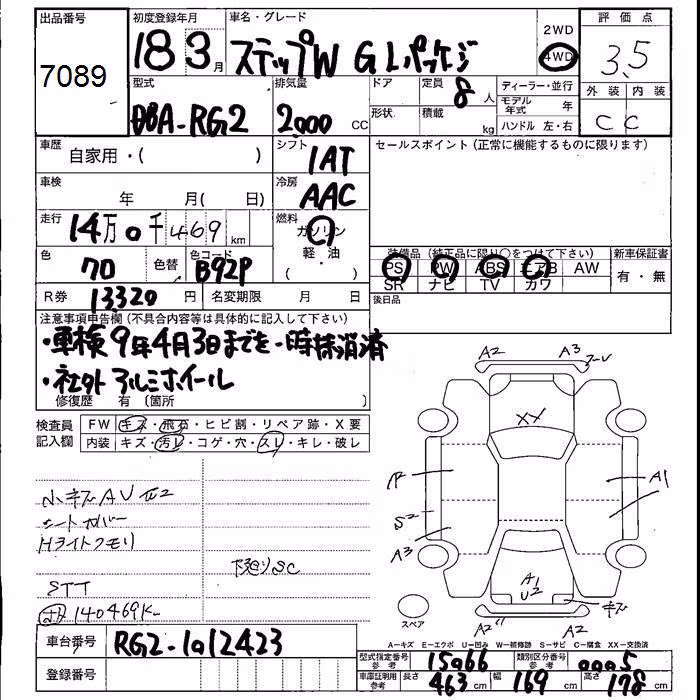 出品番号
7089
初度登録年月
18 3 月
車名・グレード
ステップW G Lパッケージ
2WD
4WD
評価点
3.5
外装 内装
C C
型式
DBA-RG2
排気量
2,000 CC
ドア
形状
定員
8 人
積載
kg
ディーラー・並行
モデル年式 年
ハンドル 左・右
車歴
自家用・( )
シフト
IAT
セールスポイント (正常に機能するものに限ります)
車検
年 月( 日)
冷房
AAC
走行
14万0千469 km
燃料
ガソリン
軽・油
( )
色
70
色替
色コード
B92P
装備品 (純正品に限り○をつけて下さい)
PS PW ABS エアB AW
SR ナビ TV カワ
新車保証書
有・無
R券
13320 円
名変期限 月 日
後日品
注意事項申告欄 (不具合内容等は具体的に記入して下さい)
・車検9年4月3日までを一時抹消済
・社外アルミホイール
修復歴 有 〔箇所 〕
検査員記入欄
FW キズ・飛石・ヒビ割・リペア跡・X要
内装 キズ・汚レ・コゲ・穴・スレ・キレ・破レ
小キズAU
シートカバー
Hライトクモリ
下廻りSC
STT
140469K
A2 A3
XX
A1
S2
A3
A1
U2
キズ
A2 A2
スペア
A-キズ E-エクボ U-凹み W-補修跡 S-サビ C-腐食 XX-交換済
車台番号
RG2-1012423
登録番号
型式指定番号 参考
15066
類別区分番号 参考
0005
車庫証明用 参考
長さ 463 cm
幅 169 cm
高さ 178 cm